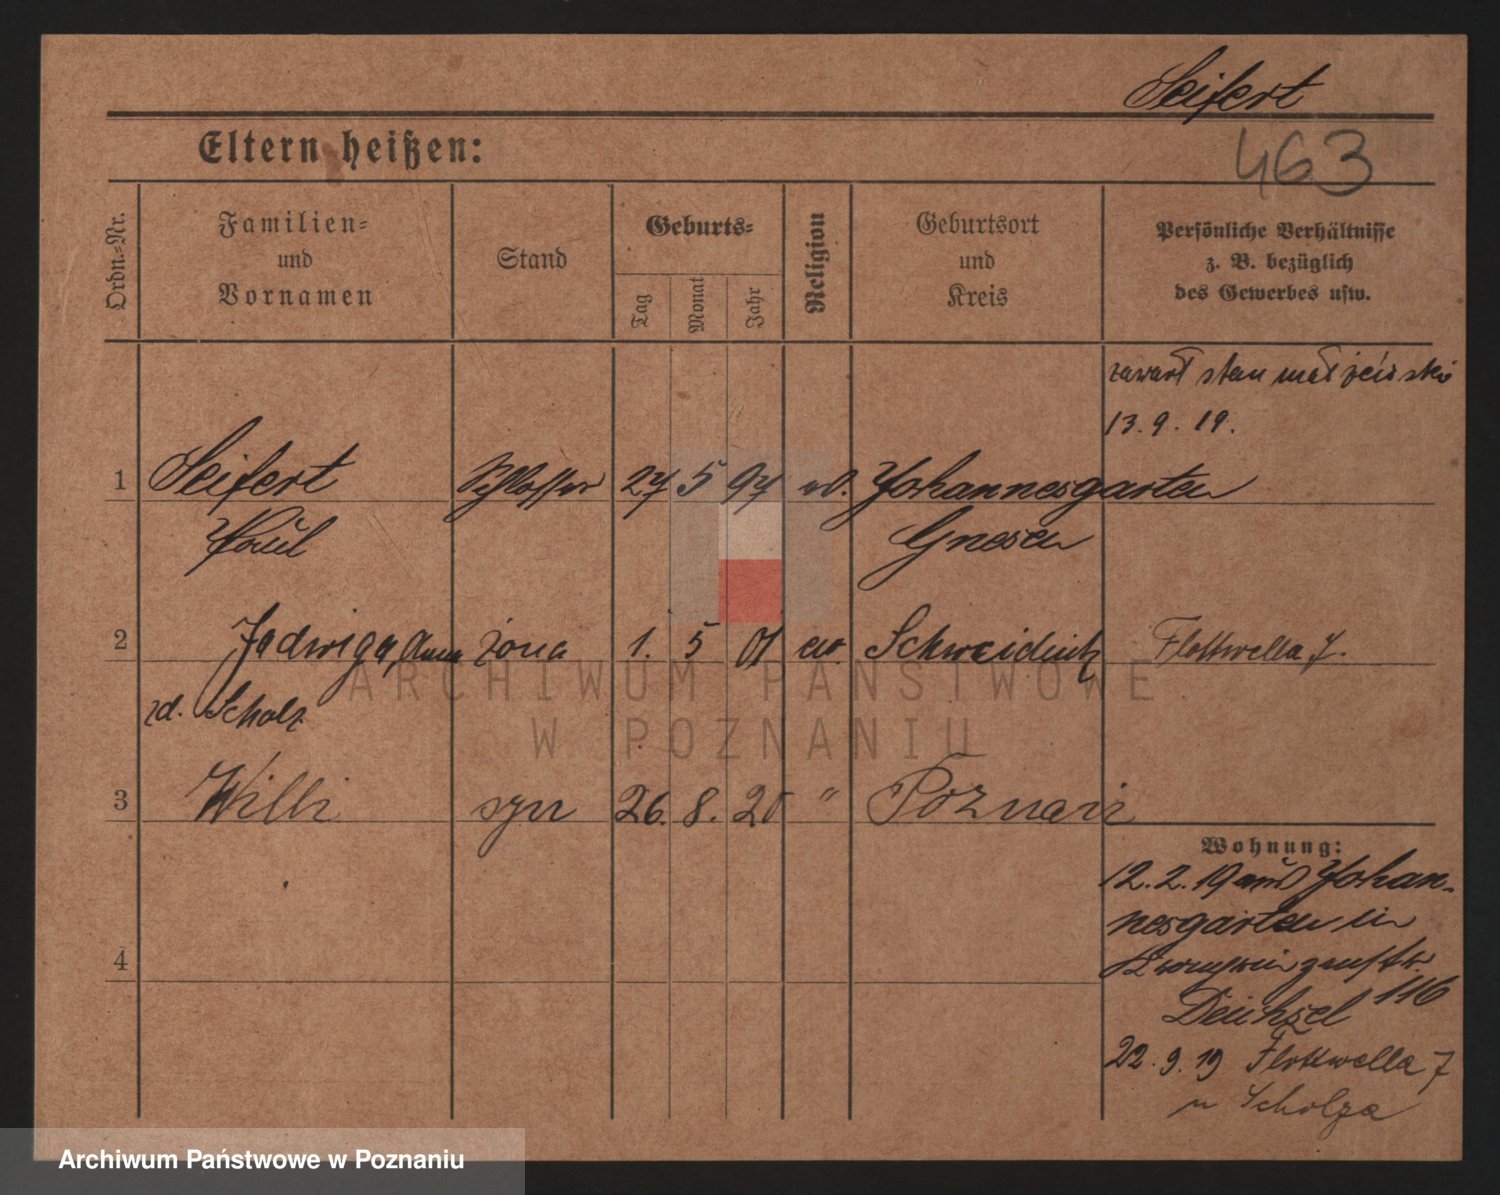 Seifert
463
Eltern heißen:
Ordn.-Nr.
Familien-
und
Vornamen
Stand
Geburts-
Tag
Monat
Jahr
Religion
Geburtsort
und
Kreis
Persönliche Verhältnisse
z. B. bezüglich
des Gewerbes usw.
zawarł stan małżeński
13. 9. 19.
1 Seifert Schlosser 27 5 97 ev. Johannesgarten
Paul Gnesen
2 Jadwiga, Anna żona 1. 5 01 ew. Schweidnitz Flottwella 7.
zd. Scholz
3 Willi syn 26. 8. 20 " Poznań
Wohnung:
12. 2. 19 aus Johan-
nesgarten in
Kronprinzenstr
116
Deichsel
4
22. 9. 19 Flottwella 7
u Scholza
ARCHIWUM PAŃSTWOWE
W POZNANIU
Archiwum Państwowe w Poznaniu